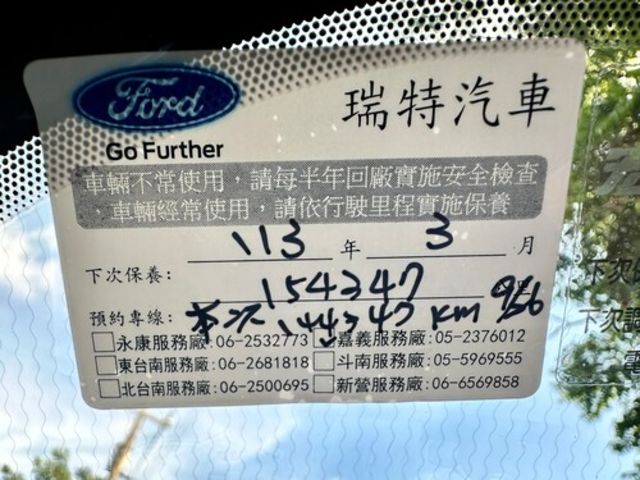 Ford
瑞特汽車
Go Further
車輛不常使用，請每半年回廠實施安全檢查
，車輛經常使用，請依行駛里程實施保養
113 年 3 月
下次保養：154347 公里
預約專線：本次 144347 KM 9/26
永康服務廠:06-2532773 嘉義服務廠:05-2376012
東台南服務廠:06-2681818 斗南服務廠:05-5969555
北台南服務廠:06-2500695 新營服務廠:06-6569858
下次
下次